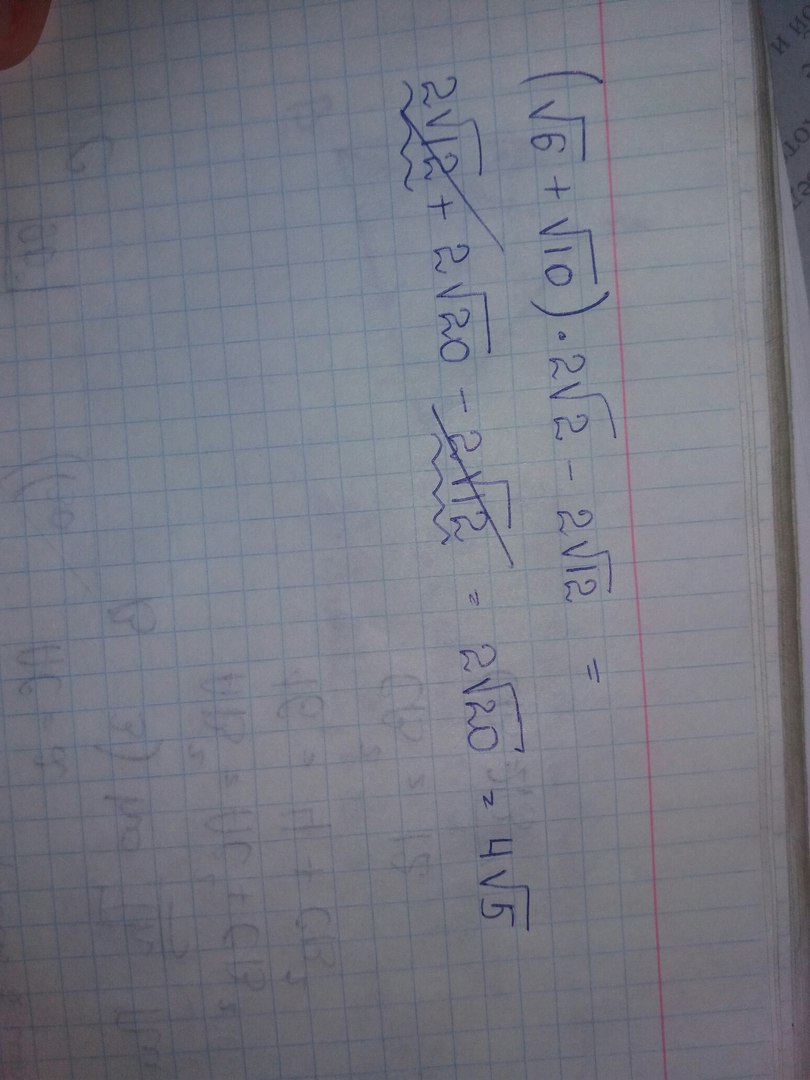 (√6 + √10) · 2√2 - 2√12 =
2√12 + 2√20 - 2√12 = 2√20 = 4√5